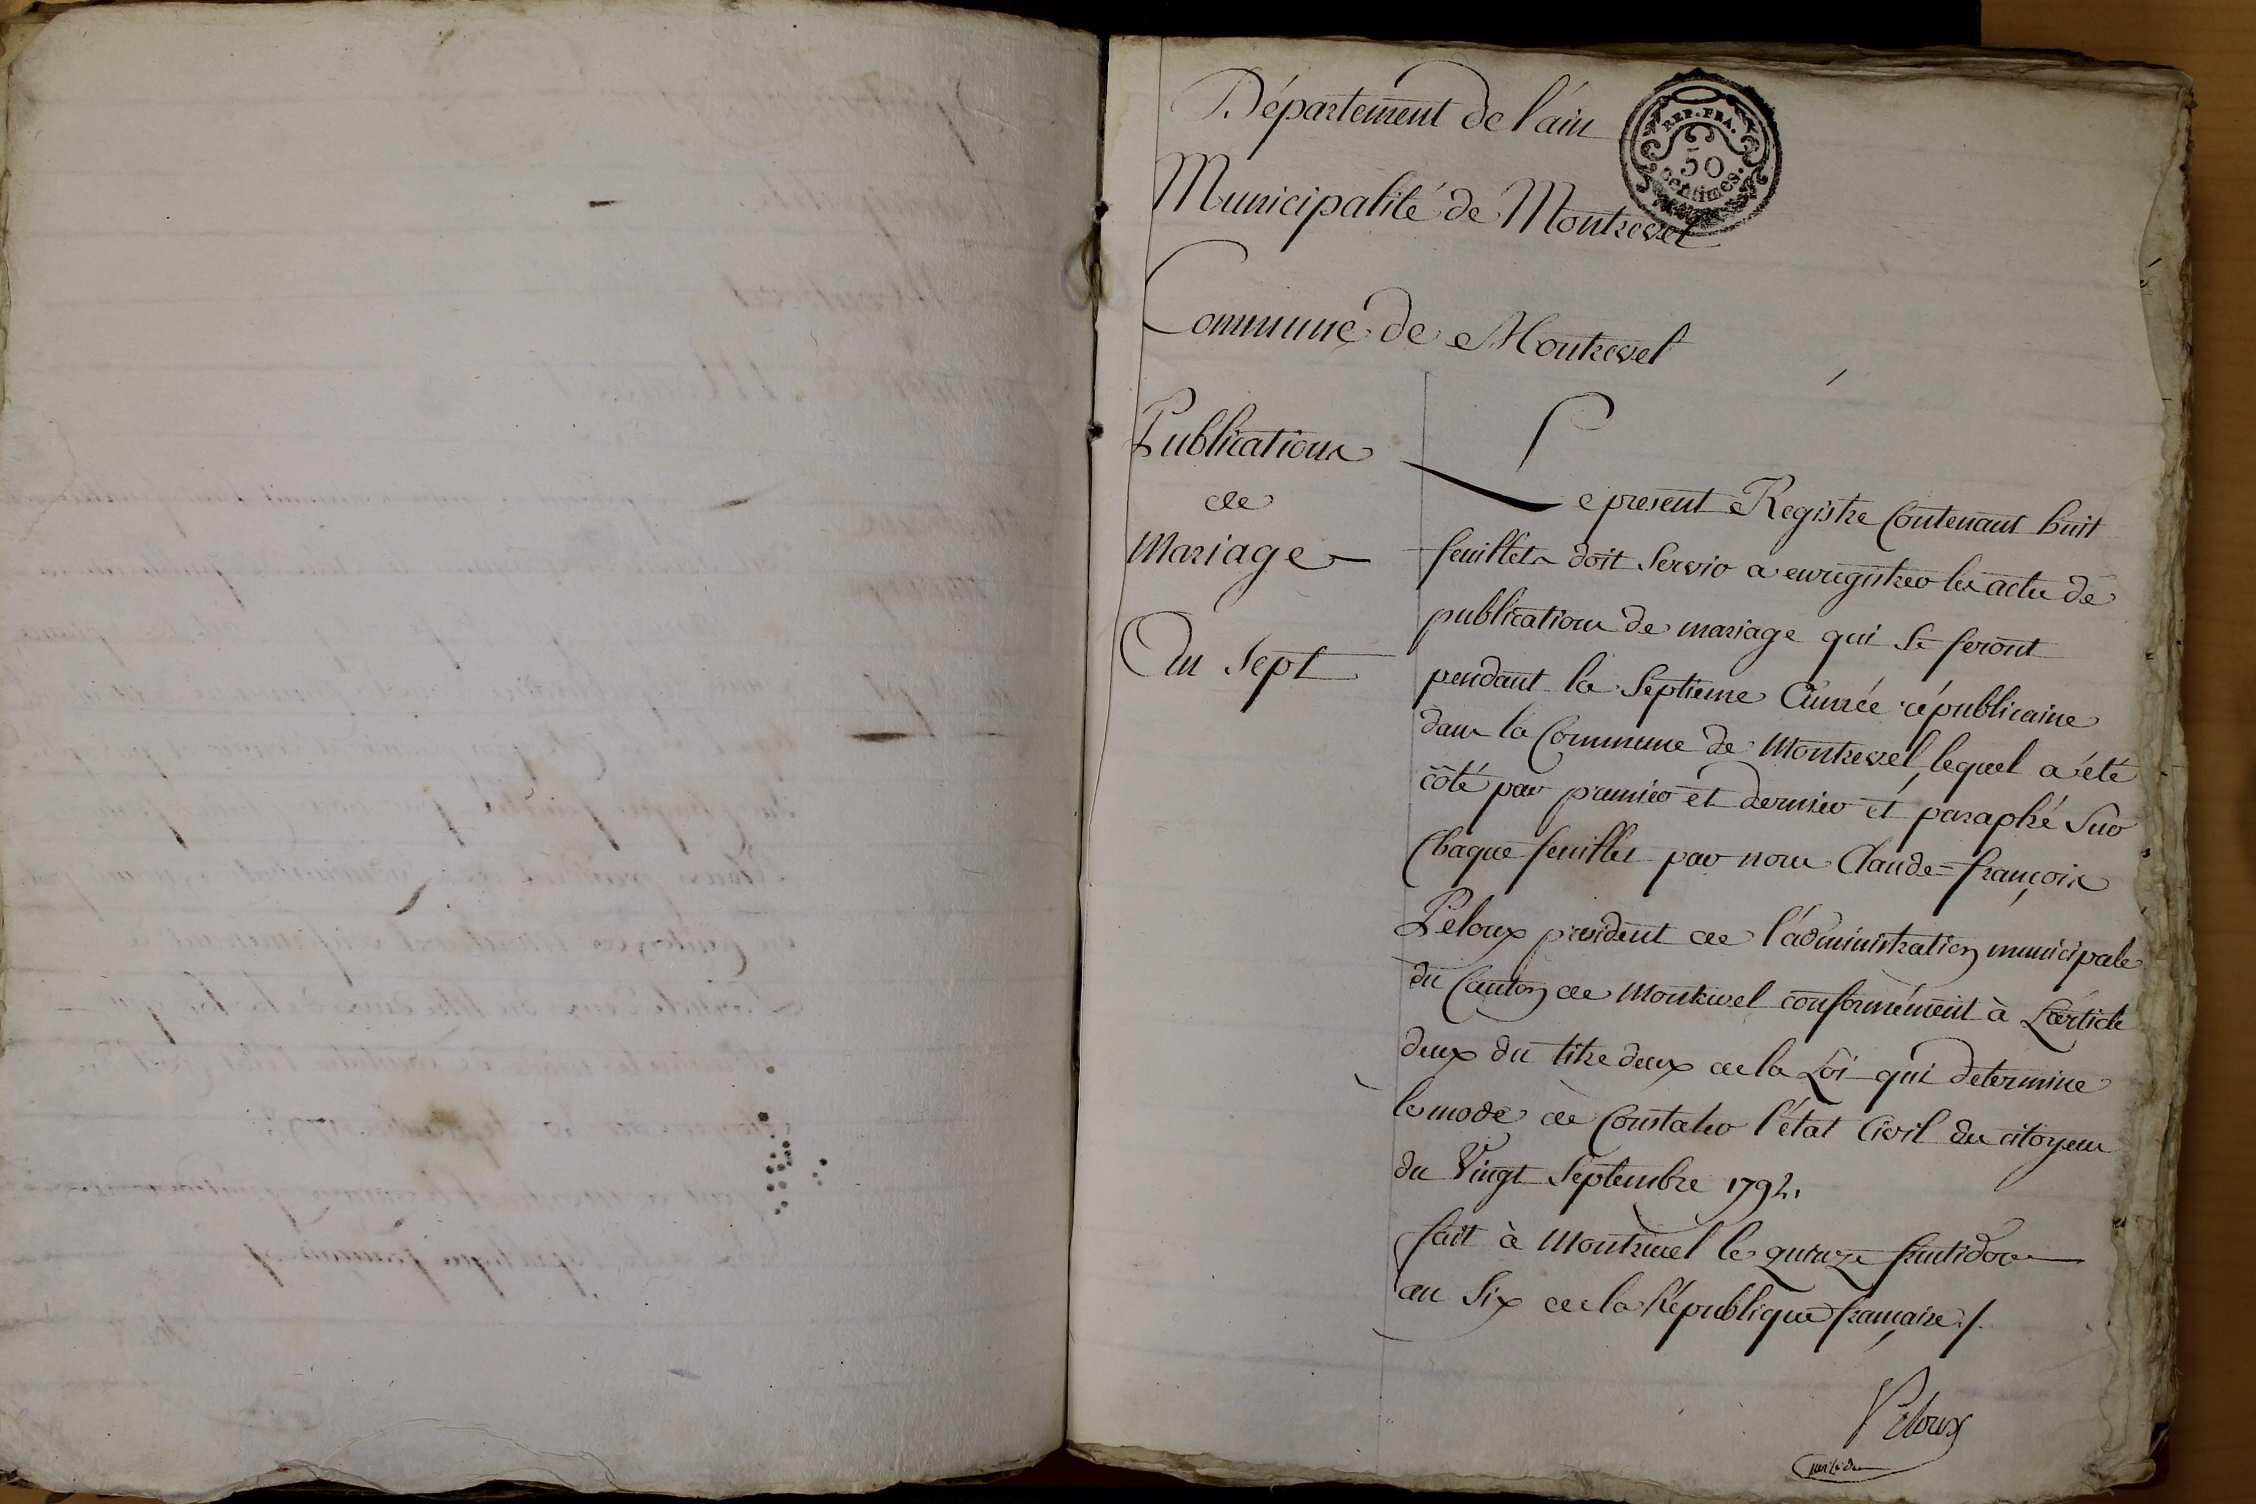 Département de l'ain
REP. FRA.
50
centimes.
Municipalité de Montrevel
Commune de Montrevel
Publications
de
Mariage
An sept
Le present Registre Contenant huit
feuillets doit servir a enregistrer les actes de
publications de mariage qui se feront
pendant la septieme Année républicaine
dans la Commune de Montrevel, lequel a été
côté par premier et dernier et paraphé sur
Chaque feuillet par nous Claude=françois
Peloux president de l'administration municipale
du Canton de Montrevel conformément à L'article
deux du titre deux de la Loi qui determine
le mode de Constater l'état Civil des citoyens
du Vingt Septembre 1792.
fait à Montrevel le quinze fructidor
an Six de la République française ./.
Peloux